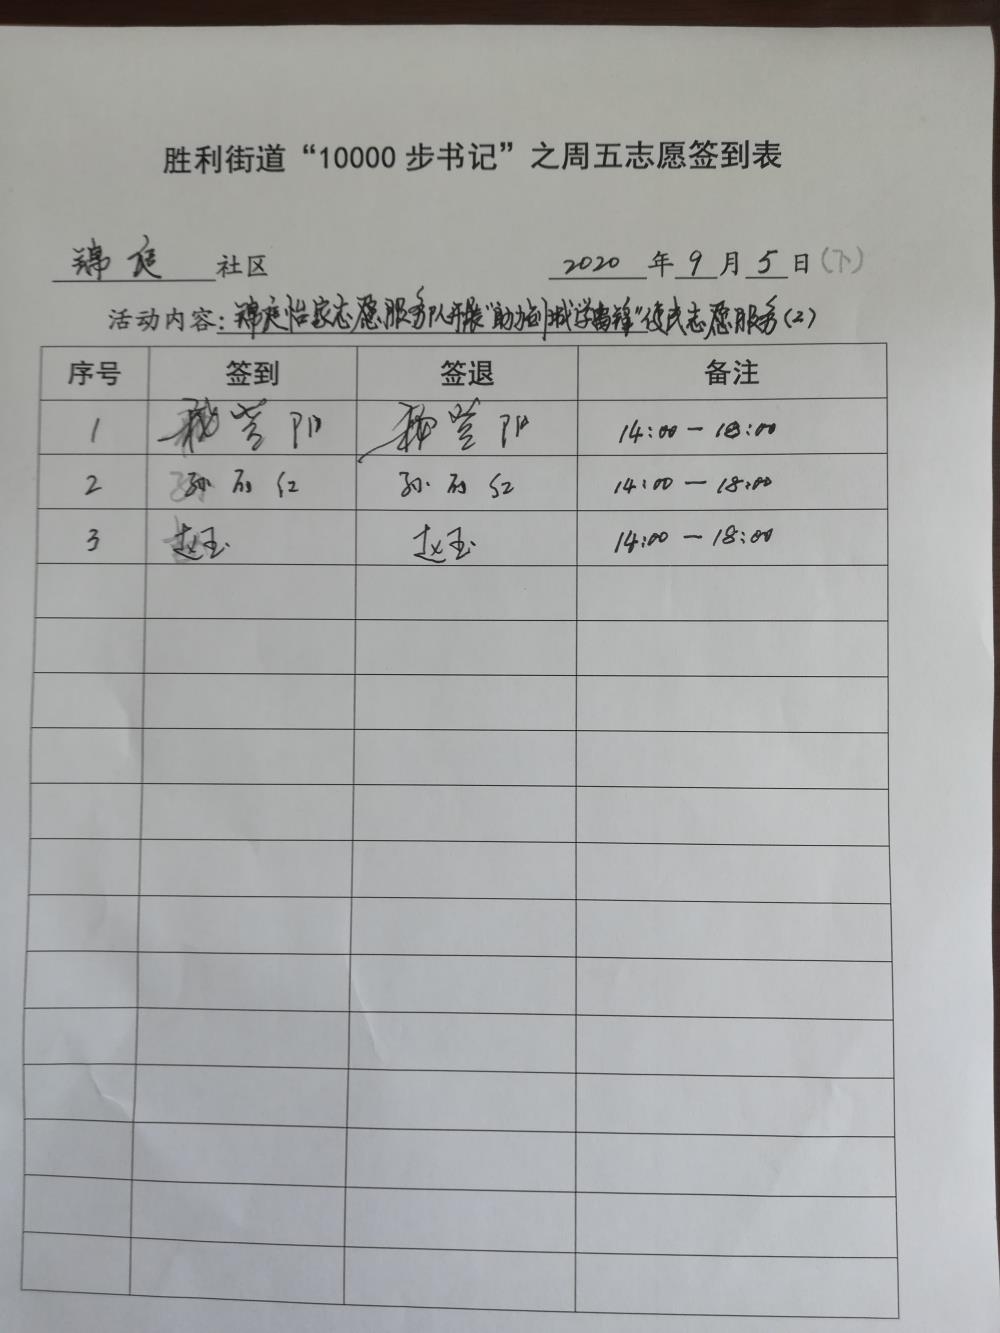 胜利街道“10000 步书记”之周五志愿签到表
锦庭 社区 2020 年 9 月 5 日（下）
活动内容：锦庭怡家志愿服务队开展“助力创城学雷锋”便民志愿服务（2）
序号 签到 签退 备注
1 阳 阳 14:00－18:00
2 孙丽红 孙丽红 14:00－18:00
3 赵玉 赵玉 14:00－18:00